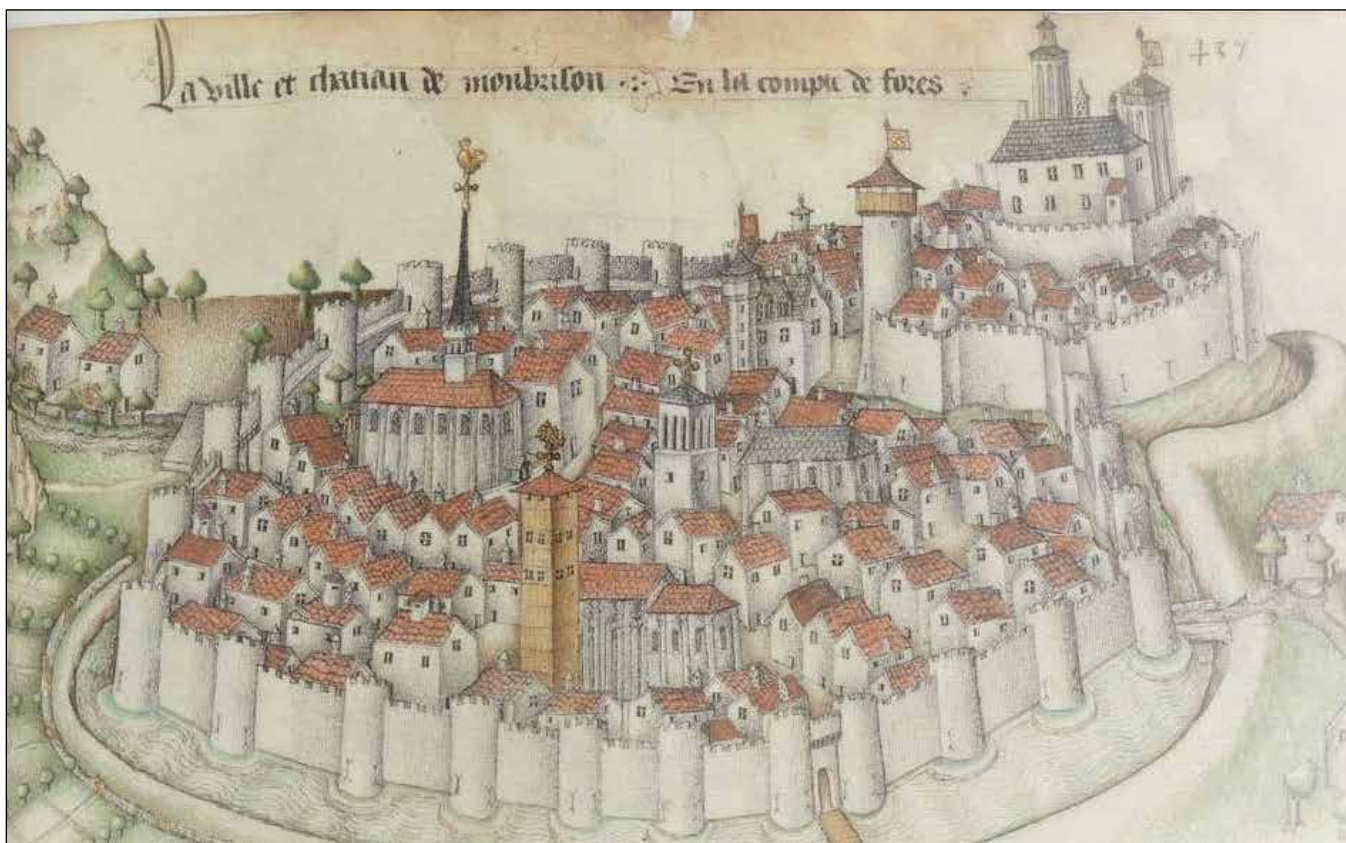 La ville et chatiau de monbrison ·:· En la compte de fores :
437